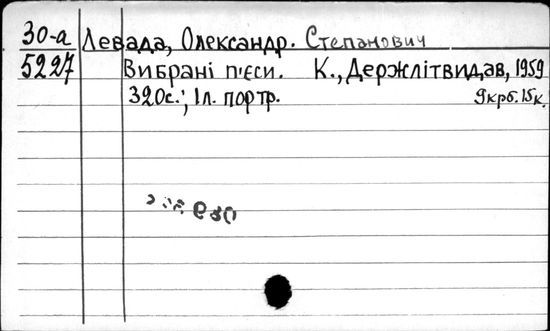 30-а Левада, Олександр. Степанович
5227 Вибрані п'єси. К., Держлітвидав, 1959
320с.; 1л. портр. 9крб.15к.